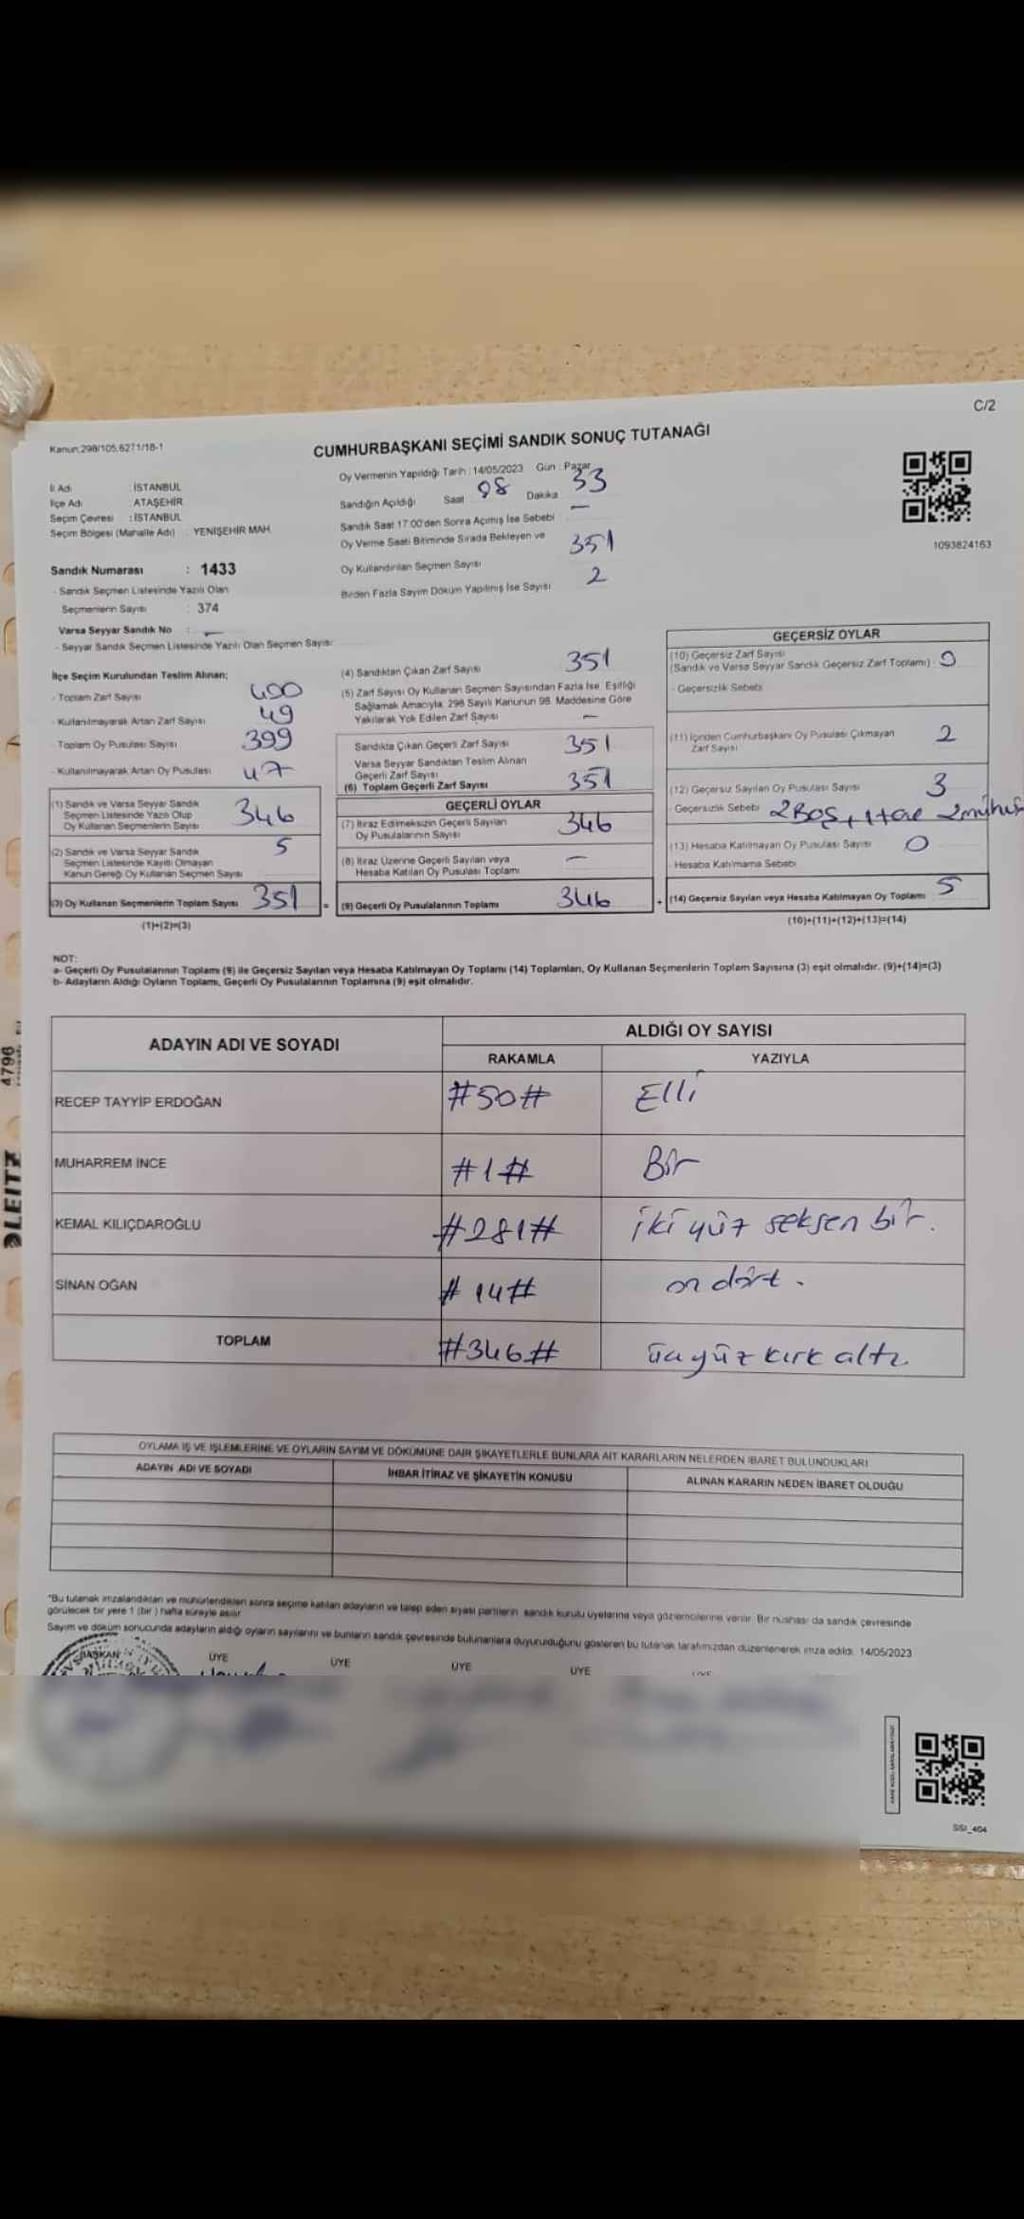 C/2
Kanun:298/105,6271/18-1
CUMHURBAŞKANI SEÇİMİ SANDIK SONUÇ TUTANAĞI
İl Adı : İSTANBUL
İlçe Adı : ATAŞEHİR
Seçim Çevresi : İSTANBUL
Seçim Bölgesi (Mahalle Adı) : YENİŞEHİR MAH.
Sandık Numarası : 1433
- Sandık Seçmen Listesinde Yazılı Olan
Seçmenlerin Sayısı : 374
Varsa Seyyar Sandık No : —
- Seyyar Sandık Seçmen Listesinde Yazılı Olan Seçmen Sayısı:
Oy Vermenin Yapıldığı Tarih : 14/05/2023 Gün : Pazar
Sandığın Açıldığı Saat 08 Dakika 33
Sandık Saat 17:00'den Sonra Açılmış İse Sebebi —
Oy Verme Saati Bitiminde Sırada Bekleyen ve
Oy Kullandırılan Seçmen Sayısı 351
Birden Fazla Sayım Döküm Yapılmış İse Sayısı 2
1093824163
İlçe Seçim Kurulundan Teslim Alınan;
- Toplam Zarf Sayısı 400
- Kullanılmayarak Artan Zarf Sayısı 49
- Toplam Oy Pusulası Sayısı 399
- Kullanılmayarak Artan Oy Pusulası 47
(1) Sandık ve Varsa Seyyar Sandık
Seçmen Listesinde Yazılı Olup
Oy Kullanan Seçmenlerin Sayısı 346
(2) Sandık ve Varsa Seyyar Sandık
Seçmen Listesinde Kayıtlı Olmayan
Kanun Gereği Oy Kullanan Seçmen Sayısı 5
(3) Oy Kullanan Seçmenlerin Toplam Sayısı 351 =
(1)+(2)=(3)
(4) Sandıktan Çıkan Zarf Sayısı 351
(5) Zarf Sayısı Oy Kullanan Seçmen Sayısından Fazla İse, Eşitliği
Sağlamak Amacıyla, 298 Sayılı Kanunun 98. Maddesine Göre
Yakılarak Yok Edilen Zarf Sayısı —
Sandıkta Çıkan Geçerli Zarf Sayısı 351
Varsa Seyyar Sandıktan Teslim Alınan
Geçerli Zarf Sayısı
(6) Toplam Geçerli Zarf Sayısı 351
GEÇERLİ OYLAR
(7) İtiraz Edilmeksizin Geçerli Sayılan
Oy Pusulalarının Sayısı 346
(8) İtiraz Üzerine Geçerli Sayılan veya
Hesaba Katılan Oy Pusulası Toplamı —
(9) Geçerli Oy Pusulalarının Toplamı 346 +
GEÇERSİZ OYLAR
(10) Geçersiz Zarf Sayısı
(Sandık ve Varsa Seyyar Sandık Geçersiz Zarf Toplamı) 0
- Geçersizlik Sebebi
(11) İçinden Cumhurbaşkanı Oy Pusulası Çıkmayan
Zarf Sayısı 2
(12) Geçersiz Sayılan Oy Pusulası Sayısı 3
- Geçersizlik Sebebi 2 Boş +
(13) Hesaba Katılmayan Oy Pusulası Sayısı 0
- Hesaba Katılmama Sebebi
(14) Geçersiz Sayılan veya Hesaba Katılmayan Oy Toplamı 5
(10)+(11)+(12)+(13)=(14)
NOT:
a- Geçerli Oy Pusulalarının Toplamı (9) ile Geçersiz Sayılan veya Hesaba Katılmayan Oy Toplamı (14) Toplamları, Oy Kullanan Seçmenlerin Toplam Sayısına (3) eşit olmalıdır. (9)+(14)=(3)
b- Adayların Aldığı Oyların Toplamı, Geçerli Oy Pusulalarının Toplamına (9) eşit olmalıdır.
ADAYIN ADI VE SOYADI ALDIĞI OY SAYISI
RAKAMLA YAZIYLA
RECEP TAYYİP ERDOĞAN #50# Elli
MUHARREM İNCE #1# Bir
KEMAL KILIÇDAROĞLU #281# iki yüz seksen bir.
SİNAN OĞAN #14# on dört.
TOPLAM #346# üçyüz kırk altı
OYLAMA İŞ VE İŞLEMLERİNE VE OYLARIN SAYIM VE DÖKÜMÜNE DAİR ŞİKAYETLERLE BUNLARA AİT KARARLARIN NELERDEN İBARET BULUNDUKLARI
ADAYIN ADI VE SOYADI İHBAR İTİRAZ VE ŞİKAYETİN KONUSU ALINAN KARARIN NEDEN İBARET OLDUĞU
*Bu tutanak imzalandıktan ve mühürlendikten sonra seçime katılan adayların ve talep eden siyasi partilerin sandık kurulu üyelerine veya gözlemcilerine verilir. Bir nüshası da sandık çevresinde
görülecek bir yere 1 (bir) hafta süreyle asılır.
Sayım ve döküm sonucunda adayların aldığı oyların sayılarını ve bunların sandık çevresinde bulunanlara duyurulduğunu gösteren bu tutanak tarafımızdan düzenlenerek imza edildi. 14/05/2023
BAŞKAN ÜYE ÜYE ÜYE ÜYE
SSI_404
4796
LEITZ